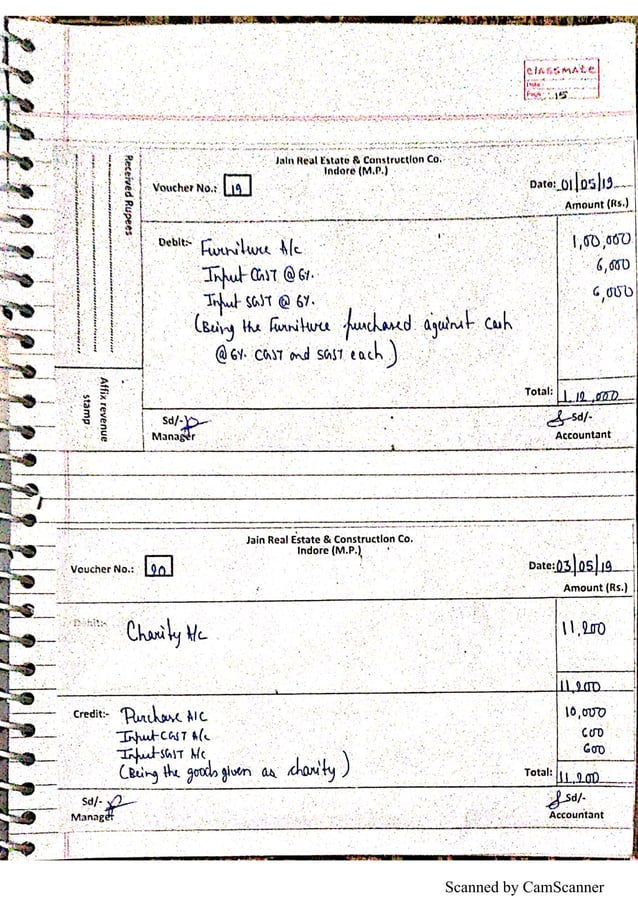 classmate
Date
Page 15
Jain Real Estate & Construction Co.
Indore (M.P.)
Voucher No.: 19
Date: 01/05/19
Amount (Rs.)
Received Rupees
Debit:- Furniture A/c 1,00,000
Input CGST @ 6%. 6,000
Input SGST @ 6%. 6,000
(Being the Furniture purchased against cash
@6%. CGST and SGST each)
Total: 1,12,000
Affix revenue
stamp
Sd/-
Manager
Sd/-
Accountant
Jain Real Estate & Construction Co.
Indore (M.P.)
Voucher No.: 20
Date: 03/05/19
Amount (Rs.)
Debit:- Charity A/c 11,200
11,200
Credit:- Purchase A/C 10,000
Input CGST A/c 600
Input SGST A/c 600
(Being the goods given as charity)
Total: 11,200
Sd/-
Manager
Sd/-
Accountant
Scanned by CamScanner